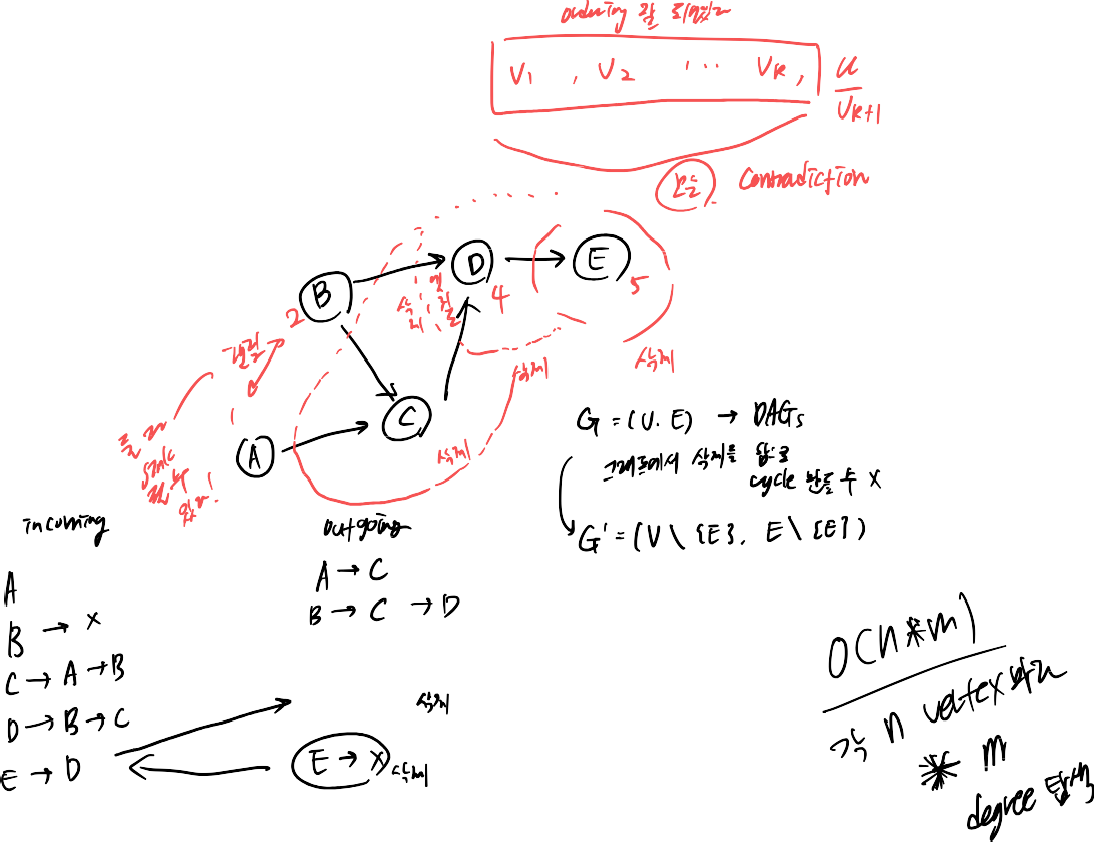 ordering 잘 되었다
V1 , V2 ... Vk, u
Vk+1
모순 Contradiction
B
2
D
4
E
5
삭제
연결
삭제
삭제
연결
1
A
C
삭제
둘 다
sink
될 수
있다!
G = (V. E) → DAGs
그래프에서 삭제를 함으로
cycle 만들 수 x
G' = (V \ {E}, E \ {E})
incoming
A
B → x
C → A → B
D → B → C
E → D
outgoing
A → C
B → C → D
삭제
E → x 삭제
O(n*m)
각 n vertex 마다
* m
degree 탐색